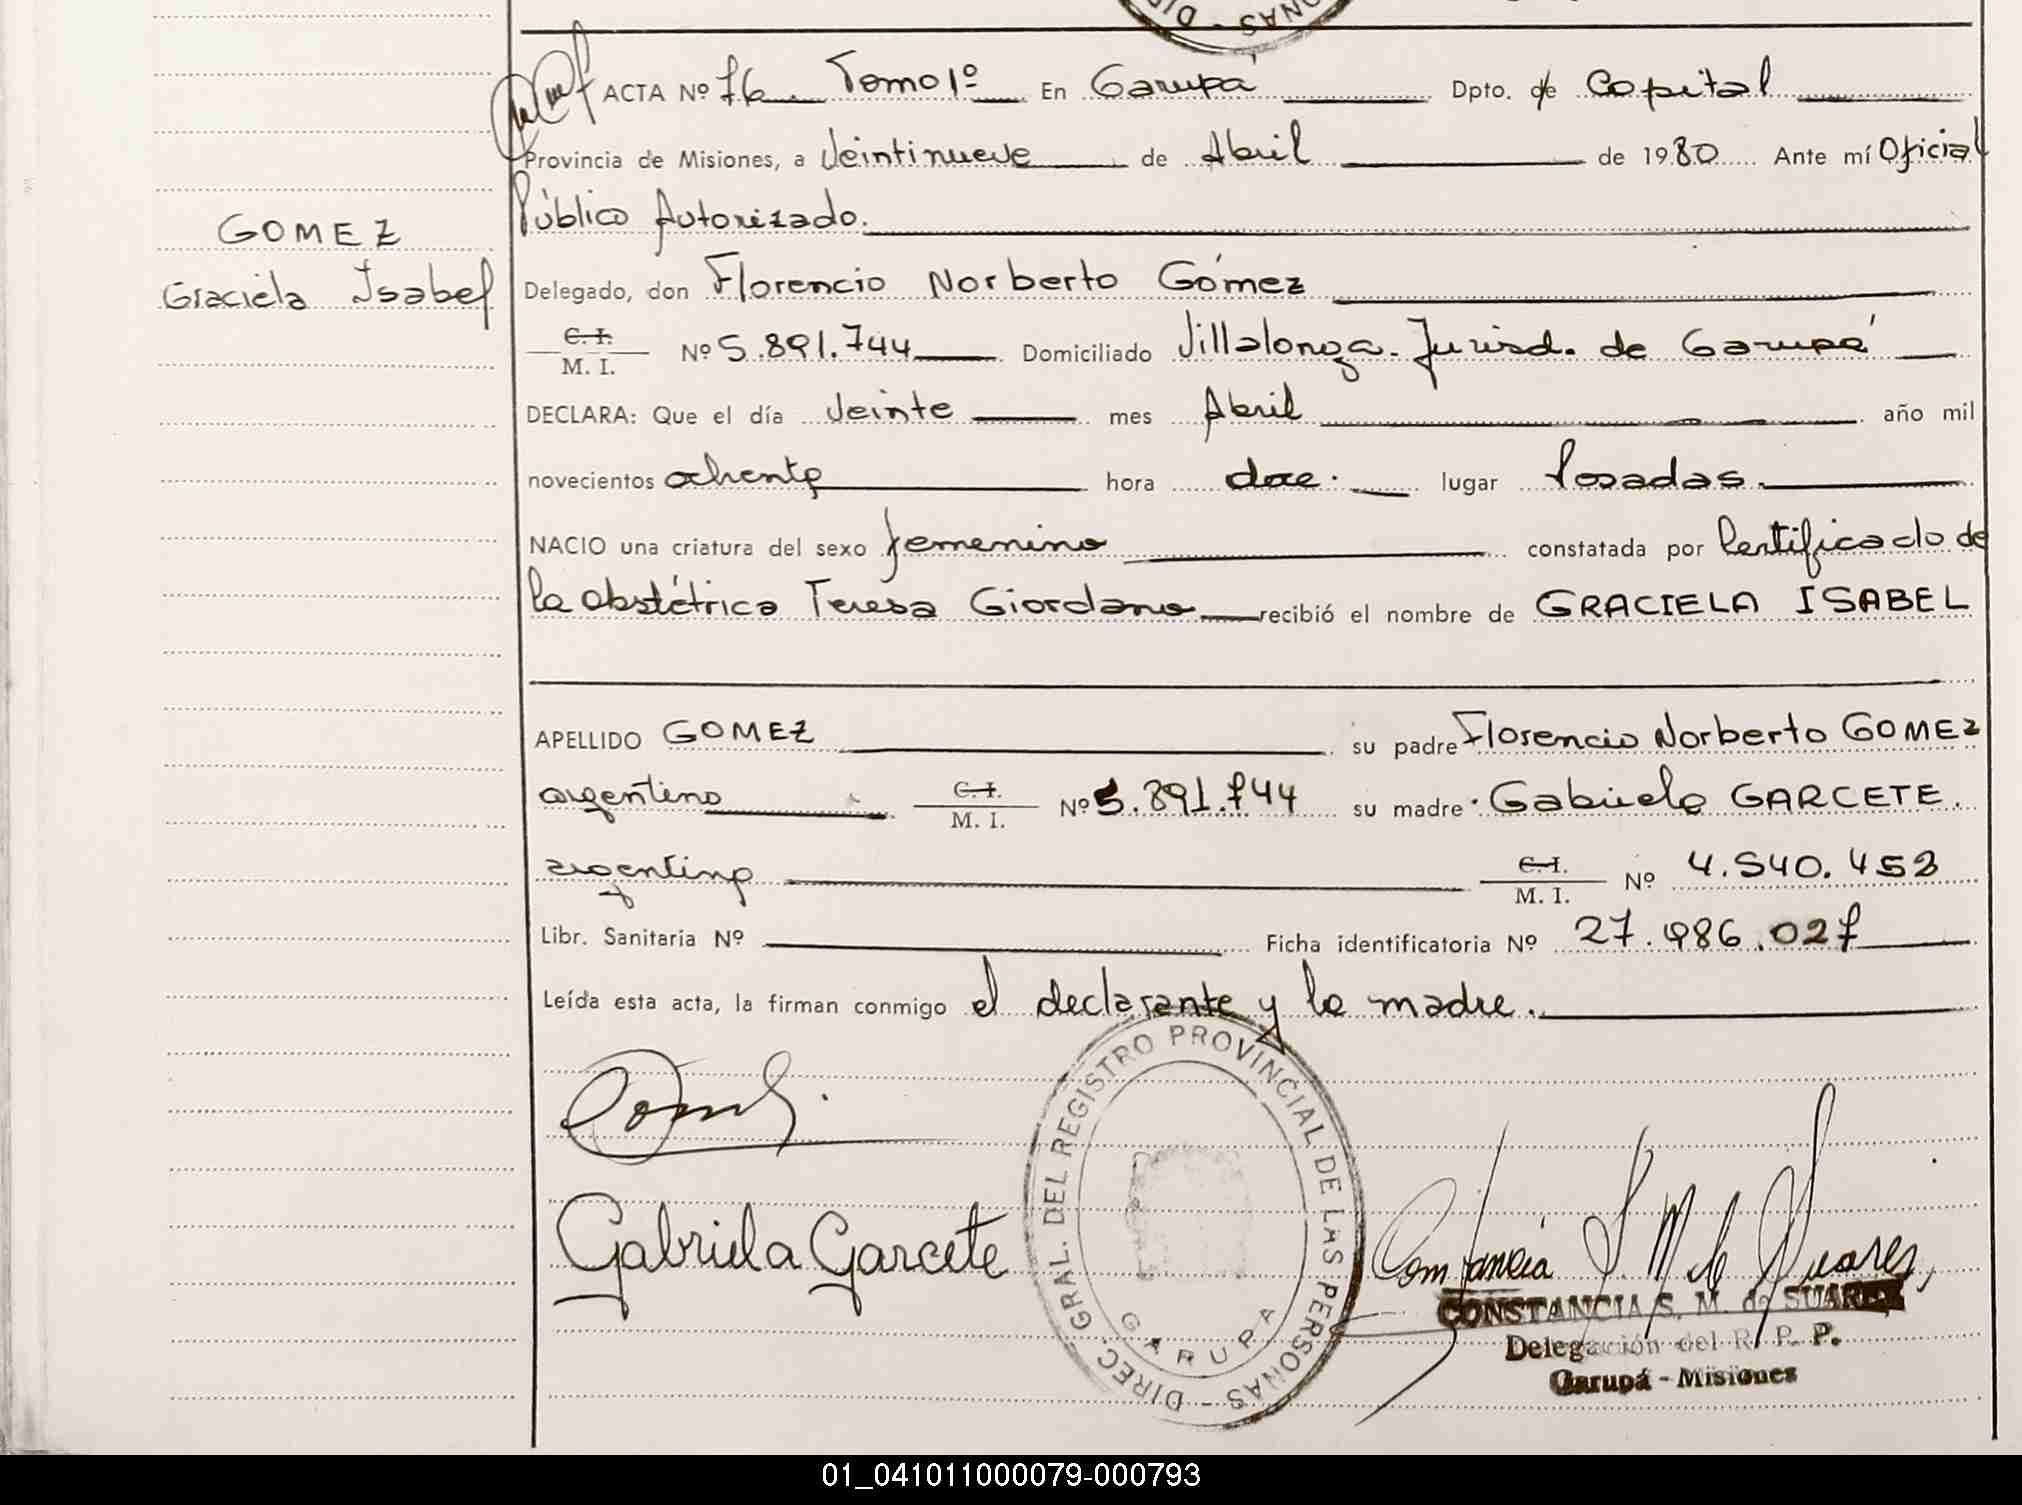 DIREC - SONAS
ACTA Nº 76 Tomo 1º En Garupá Dpto. de Capital
Provincia de Misiones, a Veintinueve de Abril de 1980 Ante mí Oficial
Público Autorizado.
GOMEZ
Graciela Isabel
Delegado, don Florencio Norberto Gómez
C. I.
M. I. Nº 5.891.744 Domiciliado Villalonga. Jurisd. de Garupá
DECLARA: Que el día Veinte mes Abril año mil
novecientos ochenta hora doce. lugar Posadas.
NACIO una criatura del sexo femenino constatada por Certificado de
la obstétrica Teresa Giordano recibió el nombre de GRACIELA ISABEL
APELLIDO GOMEZ su padre Florencio Norberto GOMEZ
argentino C. I. M. I. Nº 5.891.744 su madre Gabriela GARCETE.
argentina C. I. M. I. Nº 4.540.452
Libr. Sanitaria Nº Ficha identificatoria Nº 27.986.027
Leída esta acta, la firman conmigo el declarante y la madre.
DIREC. GRAL. DEL REGISTRO PROVINCIAL DE LAS PERSONAS -
GARUPA
Gabriela Garcete
Constancia S. M. de Suares
CONSTANCIA S. M. de SUAREZ
Delegación del R. P. P.
Garupá - Misiones
01_041011000079-000793